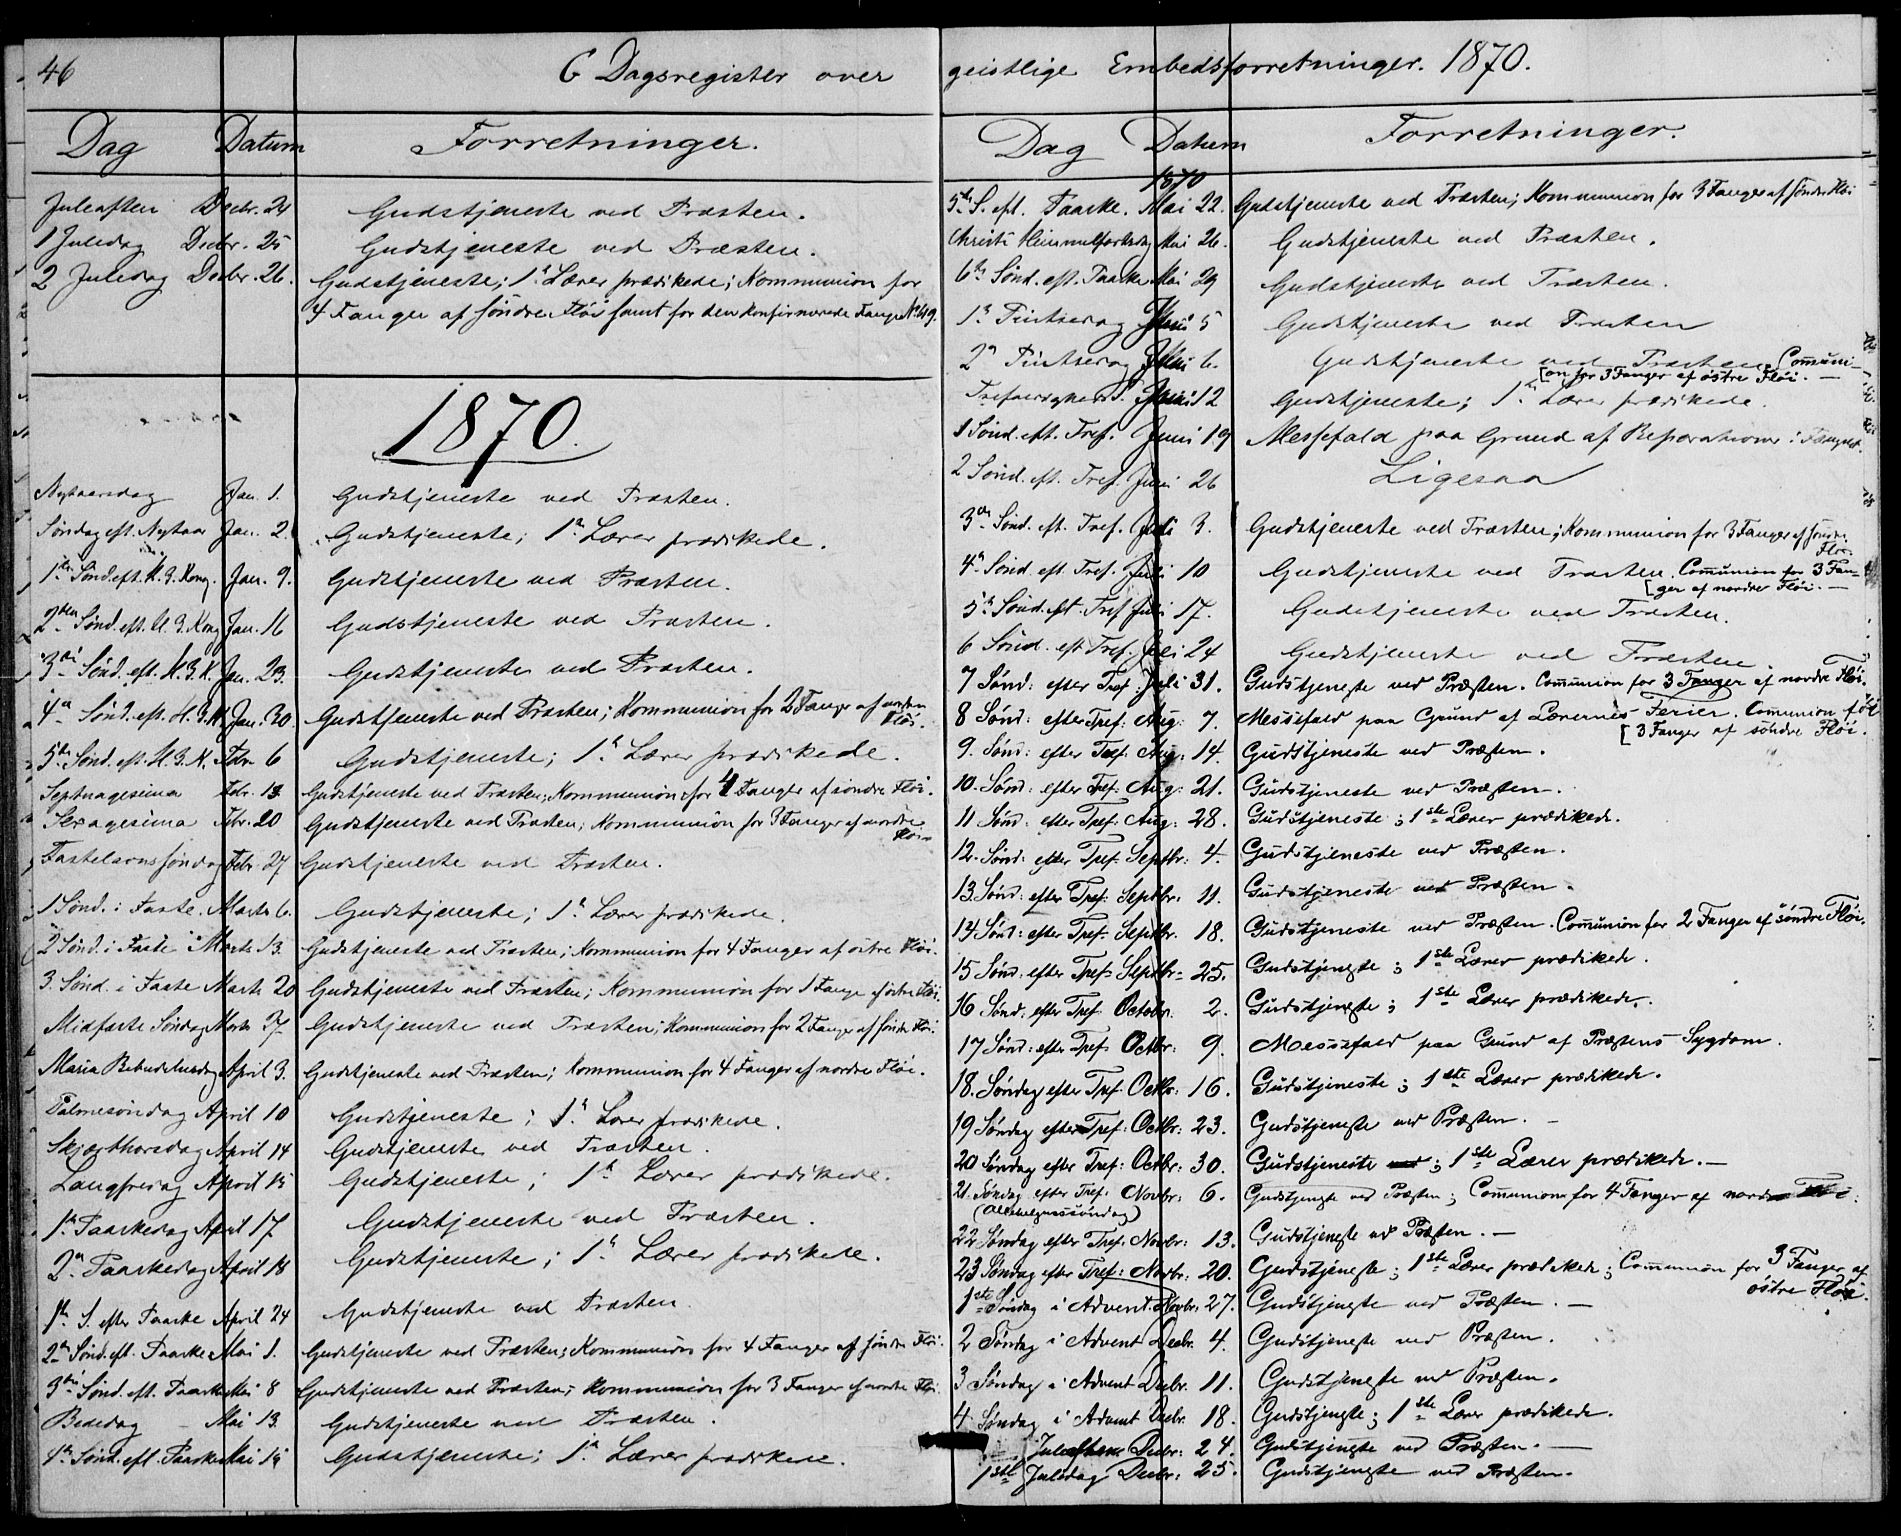 46
C Dagsregister over
Dag Datum Forretninger.
Juleaften Decbr. 24 Gudstjeneste ved Præsten.
1 Juledag Decbr. 25 Gudstjeneste ved Præsten.
2 Juledag Decbr. 26. Gudstjeneste; 1ste Lærer prædikede; Kommunion for
4 Fanger af søndre Fløi samt for den konfirmerede Fange No 49.
1870.
Nytaarsdag Jan. 1. Gudstjeneste ved Præsten.
Søndag eft. Nytaar Jan. 2. Gudstjeneste; 1ste Lærer prædikede.
1ste Sønd. eft. H. 3. Kong. Jan. 9. Gudstjeneste ved Præsten.
2den Sønd. eft. H. 3. Kong. Jan. 16 Gudstjeneste ved Præsten.
3die Sønd. eft. H. 3. K. Jan. 23. Gudstjeneste ved Præsten.
4de Sønd. eft. H. 3. K. Jan. 30. Gudstjeneste ved Præsten; Kommunion for 2 Fange af nordre
Fløi.
5te Sønd. eft. H. 3. K. Febr. 6 Gudstjeneste; 1ste Lærer prædikede.
Septuagesima Febr. 13. Gudstjeneste ved Præsten; Kommunion for 4 Fanger af søndre Fløi.
Sexagesima Febr. 20 Gudstjeneste ved Præsten; Kommunion for 3 Fanger af nordre
Fløi.
Fastelavnssøndag Febr. 27 Gudstjeneste ved Præsten.
1 Sønd. i Faste. Marts 6. Gudstjeneste; 1ste Lærer prædikede.
2 Sønd. i Faste Marts 13. Gudstjeneste ved Præsten; Kommunion for 4 Fanger af østre Fløi.
3. Sønd. i Faste Marts 20 Gudstjeneste ved Præsten; Kommunion for 1 Fange af østre Fløi.
Midfaste Søndag Marts 27. Gudstjeneste ved Præsten; Kommunion for 2 Fanger af søndre Fløi.
Maria Bebudelsesdag April 3. Gudstjeneste ved Præsten; Kommunion for 4 Fanger af nordre Fløi.
Palmesøndag April 10 Gudstjeneste; 1ste Lærer prædikede.
Skjærthorsdag April 14 Gudstjeneste ved Præsten.
Langfredag April 15 Gudstjeneste; 1ste Lærer prædikede.
1ste Paaskedag April 17. Gudstjeneste ved Præsten.
2den Paaskedag April 18 Gudstjeneste; 1ste Lærer prædikede.
1ste S. efter Paaske April 24 Gudstjeneste ved Præsten.
2den Sønd. eft. Paaske Mai 1. Gudstjeneste ved Præsten; Kommunion for 4 Fanger af søndre Fløi.
3die Sønd. eft. Paaske Mai 8 Gudstjeneste ved Præsten; Kommunion for 3 Fanger af nordre Fløi.
Bededag Mai 13. Gudstjeneste ved Præsten.
4de Sønd. eft. Paaske Mai 15 Gudstjeneste; 1ste Lærer prædikede.
geistlige Embedsforretninger. 1870.
Dag Datum Forretninger.
1870
5te S. eft. Paaske. Mai 22. Gudstjeneste ved Præsten; Kommunion for 3 Fanger af søndre Fløi
Christi Himmelfartsdag Mai 26. Gudstjeneste ved Præsten.
6te Sønd. eft. Paaske Mai 29 Gudstjeneste ved Præsten.
1ste Pintsedag Juni 5 Gudstjeneste ved Præsten
2den Pintsedag Juni 6. Gudstjeneste ved Præsten. Communi-
[on for 3 Fanger af østre Fløi. —
Trefoldigheds S. Juni 12 Gudstjeneste; 1ste Lærer prædikede.
1 Sønd. eft. Tref. Juni 19 Messefald paa Grund af Reparationer i Fængslet.
2 Sønd. eft. Tref. Juni 26 Ligesaa
3die Sønd. eft. Tref. Juli 3. Gudstjeneste ved Præsten; Kommunion for 3 Fanger af søndre
Fløi.
4de Sønd. eft. Tref. Juli 10 Gudstjeneste ved Præsten. Communion for 3 Fan-
[ger af nordre Fløi. —
5te Sønd. eft. Tref. Juli 17. Gudstjeneste ved Præsten.
6 Sønd. eft. Tref. Juli 24 Gudstjeneste ved Præsten.
7 Sønd: efter Tref. Juli 31. Gudstjeneste ved Præsten. Communion for 3 Fanger af nordre Fløi.
8 Sønd: efter Tref. Aug: 7. Messefald paa Grund af Lærernes Ferier. Communion for
[3 Fanger af søndre Fløi.
9. Sønd: efter Tref. Aug: 14. Gudstjeneste ved Præsten.
10. Sønd: efter Tref. Aug: 21. Gudstjeneste ved Præsten.
11 Sønd: efter Tref. Aug: 28. Gudstjeneste; 1ste Lærer prædikede.
12. Sønd: efter Tref. Septbr: 4. Gudstjeneste ved Præsten.
13. Sønd: efter Tref. Septbr. 11. Gudstjeneste ved Præsten.
14 Sønd: efter Tref. Septbr. 18. Gudstjeneste ved Præsten. Communion for 2 Fanger af søndre Fløi.
15 Sønd: efter Tref. Septbr. 25. Gudstjeneste; 1ste Lærer prædikede.
16 Sønd: efter Tref. October. 2. Gudstjeneste; 1ste Lærer prædikede.
17 Sønd: efter Tref. Octbr: 9. Messefald paa Grund af Præstens Sygdom.
18. Søndag efter Tref. Octbr: 16. Gudstjeneste; 1ste Lærer prædikede.
19 Søndag efter Tref: Octbr: 23. Gudstjeneste ved Præsten. —
20 Søndag efter Tref: Octbr: 30. Gudstjeneste ; 1ste Lærer prædikede. —
21. Søndag efter Tref: Novbr: 6. Gudstjeneste ved Præsten; Communion for 4 Fanger af nordre Fløi.
(Allehelgenssøndag)
22 Søndag efter Tref. Novbr: 13. Gudstjeneste ved Præsten. —
23 Søndag efter Tref: Novbr: 20. Gudstjeneste; 1ste Lærer prædikede; Communion for 3 Fanger af
østre Fløi.
1ste Søndag i Advent. Novbr: 27. Gudstjeneste ved Præsten. —
2 Søndag i Advent Decbr. 4. Gudstjeneste ved Præsten.
3 Søndag i Advent Decbr. 11. Gudstjeneste ved Præsten.
4 Søndag i Advent Decbr. 18. Gudstjeneste; 1ste Lærer prædikede.
Juleaften Decbr: 24. Gudstjeneste ved Præsten. —
1ste Juledag Decbr: 25. Gudstjeneste ved Præsten.